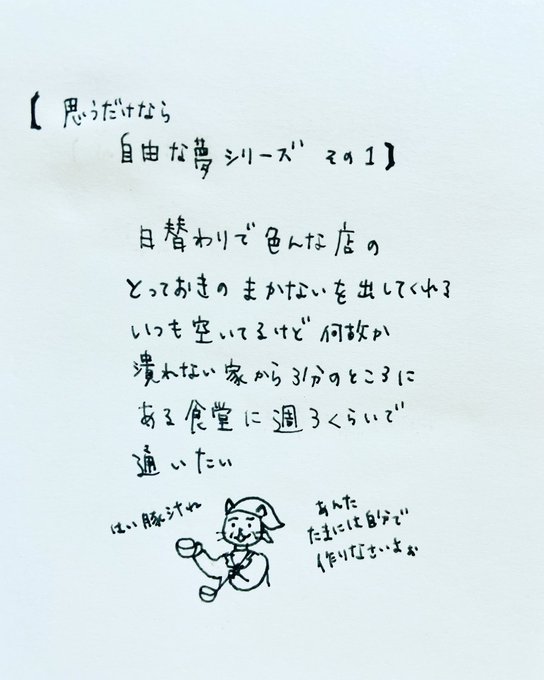 【思うだけなら
自由な夢シリーズ その1】
日替わりで色んな店の
とっておきのまかないを出してくれる
いつも空いてるけど何故か
潰れない家から31分のところに
ある食堂に週3くらいで
通いたい
はい豚汁ね
あんた
たまには自分で
作りなさいよぉ